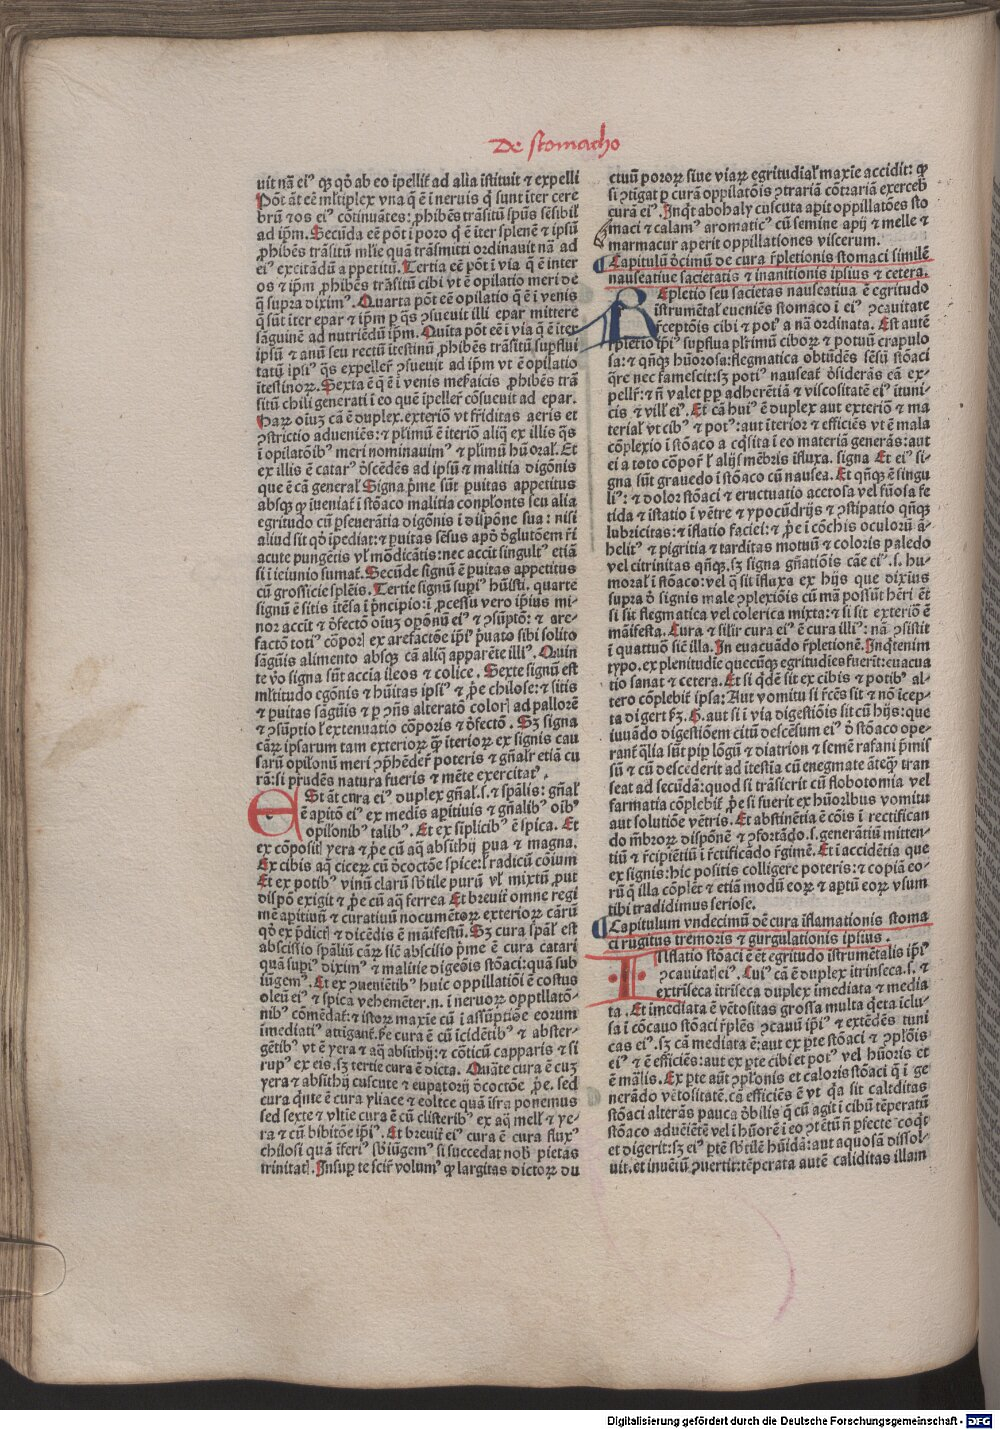 De stomacho
uit nã ei⁹ qꝫ q̃ ab eo ĩpellit̃ ad alia ĩstituit ⁊ expelli
Põt ãt eẽ ml̃tiplex vna q̃ ẽ i neruis q̃ sunt iter cere
brũ ⁊ os ei⁹ cõtinuãtes: ꝓhibẽs trãsitũ spũs sẽsibil̃
ad ip̃m. Secũda eẽ põt i poro q̃ ẽ iter splenẽ ⁊ ipsũ
ꝓhibẽs trãsitũ ml̃ie quã trãsmitti ordinauit nã ad
ei⁹ excitãdũ appetitũ. Tertia eẽ põt i via q̃ ẽ inter
os ⁊ ip̃m ꝓhibẽs trãsitũ cibi vt ẽ opilatio meri de
q̃ supra dixim⁹. Quarta põt eẽ opilatio q̃ ẽ i venis
q̃ sũt iter epar ⁊ ip̃m ꝑ q̃s ꝯsueuit illi epar mittere
sãguinẽ ad nutriẽdũ ip̃m. Quĩta põt eẽ i via q̃ ẽ iter
ipsũ ⁊ anũ seu rectũ ĩtestinũ ꝓhibẽs trãsitũ supflui
tatũ ipsi⁹ q̃s expeller̃ ꝯsueuit ad ip̃m vt ẽ opilatio
ĩtestinoꝝ. Sexta ẽ q̃ ẽ i venis meẜaicis ꝓhibẽs trã
sitũ chili generati i eo quẽ ĩpeller̃ cõsueuit ad epar.
Haꝝ oĩuꝫ cã ẽ duplex. exteriõ vt fr̃iditas aeris et
ꝯstrictio adueniẽs: ⁊ pl̃imũ ẽ iteriõ aliq̃ ex illis q̃s
i opilatõib⁹ meri nominauim⁹ ⁊ pl̃imũ hũoral̃. Et
ex illis ẽ catar⁹ d̃scẽdẽs ad ipsũ ⁊ malitia digõnis
que ẽ cã general̃ Signa p̃me sũt ꝑuitas appetitus
absqꝫ ꝙ iueniat̃ i stõaco malitia conplonts seu alia
egritudo cũ ꝑseuerãtia digõnis i dispõne sua: nisi
aliud sit q̃ ĩpediat: ⁊ ꝑuitas sẽsus apõ d̃glutõem r̃i
acute pungẽtis vl̃ mõdicãtis: nec accit singult⁹ etiã
si i ieiunio sumat̃. Secũde signũ ẽ ꝑuitas appetitus
cũ grossicie splẽis. Tertie signũ supi⁹ hũisti. quarte
signũ ẽ sitis itẽsa i p̃ncipio: i ꝓcessu vero ip̃ius mi-
nor accit ⁊ d̃fectõ oĩuꝫ opõnũ ei⁹ ⁊ ꝯsũptõ: ⁊ are-
factõ toti⁹ cõpoꝝ ex arefactõe ip̃i⁹ p̃uato sibi solito
sãguis alimento absqꝫ cã aliq̃ apparẽte illi⁹. Quin
te vo signa sũt accia ileos ⁊ colice. Sexte signũ est
ml̃titudo egõnis ⁊ hũitas ipsi⁹ ⁊ p̃e chilose: ⁊ sitis
⁊ ꝑuitas sãgũis ⁊ ꝑ ꝯñs alteratõ coloꝝ ad pallorẽ
⁊ ꝯsũptio l̃ extenuatio cõporis ⁊ d̃fectõ. Sꝫ signa
cãꝝ ipsarum tam exterioꝝ q̃ iterioꝝ ex signis cau
sarũ opilonũ meri ꝯp̃hẽder̃ poteris ⁊ gñalr̃ etiã cu
rã: si prudẽs natura fueris ⁊ mẽte exercitat⁹.
ESt ãt cura ei⁹ duplex gñal̃. s. ⁊ sp̃alis: gñal̃
ẽ apitõ ei⁹ ex medis apitiuis ⁊ gñalib⁹ oĩb⁹
opilonib⁹ talib⁹. Et ex sĩplicib⁹ ẽ spica. Et
ex cõposit̃ yera ⁊ p̃e cũ aq̃ absithij pua ⁊ magna.
Ex cibis aq̃ ciceꝝ cũ d̃coctõe spice: l̃ radicũ cõium
Et ex potib⁹ vinũ clarũ sbtile purũ vl̃ mixtũ ꝓut
dispõ exigit ⁊ p̃e cũ aq̃ ferrea Et breuit̃ omne regi
mẽ apitiuũ ⁊ curatiuũ nocumẽtoꝝ exterioꝝ cãrũ
q̃ ex p̃dict̃ ⁊ dicẽdis ẽ mãifestũ. Sꝫ cura sp̃al̃ est
abscissio sp̃aliũ cãꝝ sic̃ abscilio p̃me ẽ cura catari
quã supi⁹ dixim⁹ ⁊ malitie digeõis stõaci: quã sub
iũgem⁹. Et ex ꝯueniẽtib⁹ huic oppillatiõi ẽ costus
oleũ ei⁹ ⁊ spica vehemẽter. n. i neruoꝝ opptllatõ-
nib⁹ cõmẽdat̃: ⁊ istoꝝ maxie cũ i assũptiõe eorum
ĩmediati⁹ attigant̃. p̃e cura ẽ cũ icidẽtib⁹ ⁊ abster-
gẽtib⁹ vt ẽ yera ⁊ aq̃ absithij: ⁊ cõticũ capparis ⁊ si
rup⁹ ex eis. sꝫ tertie cura ẽ dicta. Quãte cura ẽ cuꝫ
yera ⁊ absithij cuscute ⁊ eupatorij d̃coctõe p̃e. sed
cura q̃nte ẽ cura yliace ⁊ colice quã ifra ponemus
sed sexte ⁊ vltie cura ẽ cũ clisterib⁹ ex aq̃ mell̃ ⁊ ye-
ra ⁊ cũ bibitõe ip̃i⁹. Et breuit̃ ei⁹ cura ẽ cura flux⁹
chilosi quã ĩferi⁹ sbiũgem⁹ si succedat nob̃ pietas
trinitat̃. Insuꝑ te scir̃ volum⁹ ꝙ largitas dictoꝝ du
ctuũ poroꝝ siue viaꝝ egritudial̃ maxie accidit: ꝙ
si ꝯtigat ꝑ curã oppilatõis ꝯtrariã cõtrariã exerceb̃
curã ei⁹. Inq̃t abohaly cuscuta apit oppillatões sto
maci ⁊ calam⁹ aromatic⁹ cũ semine apij ⁊ melle ⁊
marmacur aperit oppillationes viscerum.
Capitulũ d̃cimũ de cura r̃pletionis stomaci similẽ
nauseatiue sacietatis ⁊ inanitionis ipsius ⁊ cetera.
REpletio seu sacietas nauseatiua ẽ egritudo
ĩstrumẽtal̃ eueniẽs stomaco i ei⁹ ꝯcauitate
r̃ceptõis cibi ⁊ pot⁹ a nã ordinata. Est autẽ
r̃pletio ip̃i⁹ supflua pl̃rimũ ciboꝝ ⁊ potuũ crapulo
sa: ⁊ qñqꝫ hũorosa: flegmatica obtũdẽs sẽsũ stõaci
q̃re nec famescit: sꝫ poti⁹ nauseat̃ d̃siderãs eã ex-
pellr̃: ⁊ ñ valet ꝓp̃ adherẽtiã ⁊ viscositatẽ ei⁹ ituni-
cis ⁊ vill̃ ei⁹. Et cã hui⁹ ẽ duplex aut exteriõ ⁊ ma
terial̃ vt cib⁹ ⁊ pot⁹: aut iterior ⁊ efficiẽs vt ẽ mala
cõplexio i stõaco a cq̃sita i eo materiã generãs: aut
ei a toto cõpor̃ l̃ alijs mẽbris ĩfluxa. signa Et ei⁹ si-
gna sũt grauedo i stõaco cũ nausea. Et qñqꝫ ẽ singu
li⁹: ⁊ dolor stõaci ⁊ eructuatio acetosa vel fũosa fe
tida ⁊ istatio i vẽtre ⁊ ypocũdrijs ⁊ ꝯstipatio qñqꝫ
lubricitas: ⁊ iflatio faciei: ⁊ p̃e i cõchis oculorũ ã-
helit⁹ ⁊ pigritia ⁊ tarditas motuũ ⁊ coloris paledo
vel citrinitas qñqꝫ. sꝫ signa gñatiõis cãe ei⁹. s. hu-
moral̃ i stõaco: vel q̃ sit ĩfluxa ex hijs que dixius
supra d̃ signis male ꝯplexiõis cũ mã possũt heri ẽt
si sit flegmatica vel colerica mixta: ⁊ si sit exteriõ ẽ
mãifesta. Cura ⁊ silir̃ cura ei⁹ ẽ cura illi⁹: nã ꝯsistit
i quattuõ sic̃ illa. In euacuãdo r̃pletionẽ. Inq̃tenim
typo. ex plenitudie quecũqꝫ egritudies fuerĩt: euacua
tio sanat ⁊ cetera. Et si q̃dẽ sit ex cibis ⁊ potib⁹ al-
tero cõplebit̃ ipsa: Aut vomitu si r̃cẽs sit ⁊ nõ icep-
ta digert̃ꝫ. S. aut si i via digestiõis sit cũ hijs: que
iuuãdo digestiõem citũ descẽsum ei⁹ d̃ stõaco ope-
rant̃ q̃lia sũt pip lõgũ ⁊ diatrion ⁊ semẽ rafani p̃mis
sũ ⁊ cũ descẽderit ad itestĩa cũ enegmate ãteq̃ꝫ tran
seat ad secũdã: quod si trãsicrit cũ flobotomia vel
farmatia cõplebit̃ p̃e si fuerit ex hũoribus vomitu
aut solutiõe vẽtris. Et abstinẽtia ẽ cõis i rectifican
do m̃broꝝ dispõnẽ ⁊ ꝯfortãdo. s. generãtiũ mitten-
tiũ ⁊ r̃cipiẽtiũ i r̃ctificãdo r̃gimẽ. Et i accidẽtia que
ex signis: hic positis colligere poteris: ⁊ copiã eo-
rũ q̃ illa cõplẽt ⁊ etiã modũ eoꝝ ⁊ aptũ eoꝝ vsum
tibi tradidimus seriose.
Capitulum vndecimũ de cura iflamationis stoma
ci rugitus tremoris ⁊ gurgulationis ipsius.
ISflatio stõaci ẽ ẽt egritudo istrumẽtalis ip̃i⁹
ꝯcauitat̃ ei⁹. Cui⁹ cã ẽ duplex itrinseca. s. ⁊
extriseca itriseca duplex imediata ⁊ media
ta. Et imediata ẽ vẽtositas grossa multa q̃eta iclu-
sa i cõcauo stõaci r̃plẽs ꝯcauũ ip̃i⁹ ⁊ extẽdẽs tuni
cas ei⁹. sꝫ cã mediata ẽ: aut ex ꝑte stõaci ⁊ ꝯplõis
ei⁹ ⁊ ẽ efficiẽs: aut ex ꝑte cibi et pot⁹ vel hũoris et
ẽ mãlis. Ex ꝑte aũt ꝯplonis et caloris stõaci q̃ i ge
nerãdo vẽtositatẽ. cã efficiẽs ẽ vt q̃a sit caliditas
stõaci alterãs pauca d̃bilis q̃ cũ agit i cibũ tẽperatũ
stõaco adueniẽtẽ vel i hũorẽ i eo ꝯtẽtũ ñ pfecte coq̃t
et digerit: sꝫ ei⁹ ꝑtẽ sbtilẽ hũidã: aut aquosã dissol-
uit. et inuẽtũ ꝯuertit: tẽperata autẽ caliditas illam
Digitalisierung gefördert durch die Deutsche Forschungsgemeinschaft - DFG